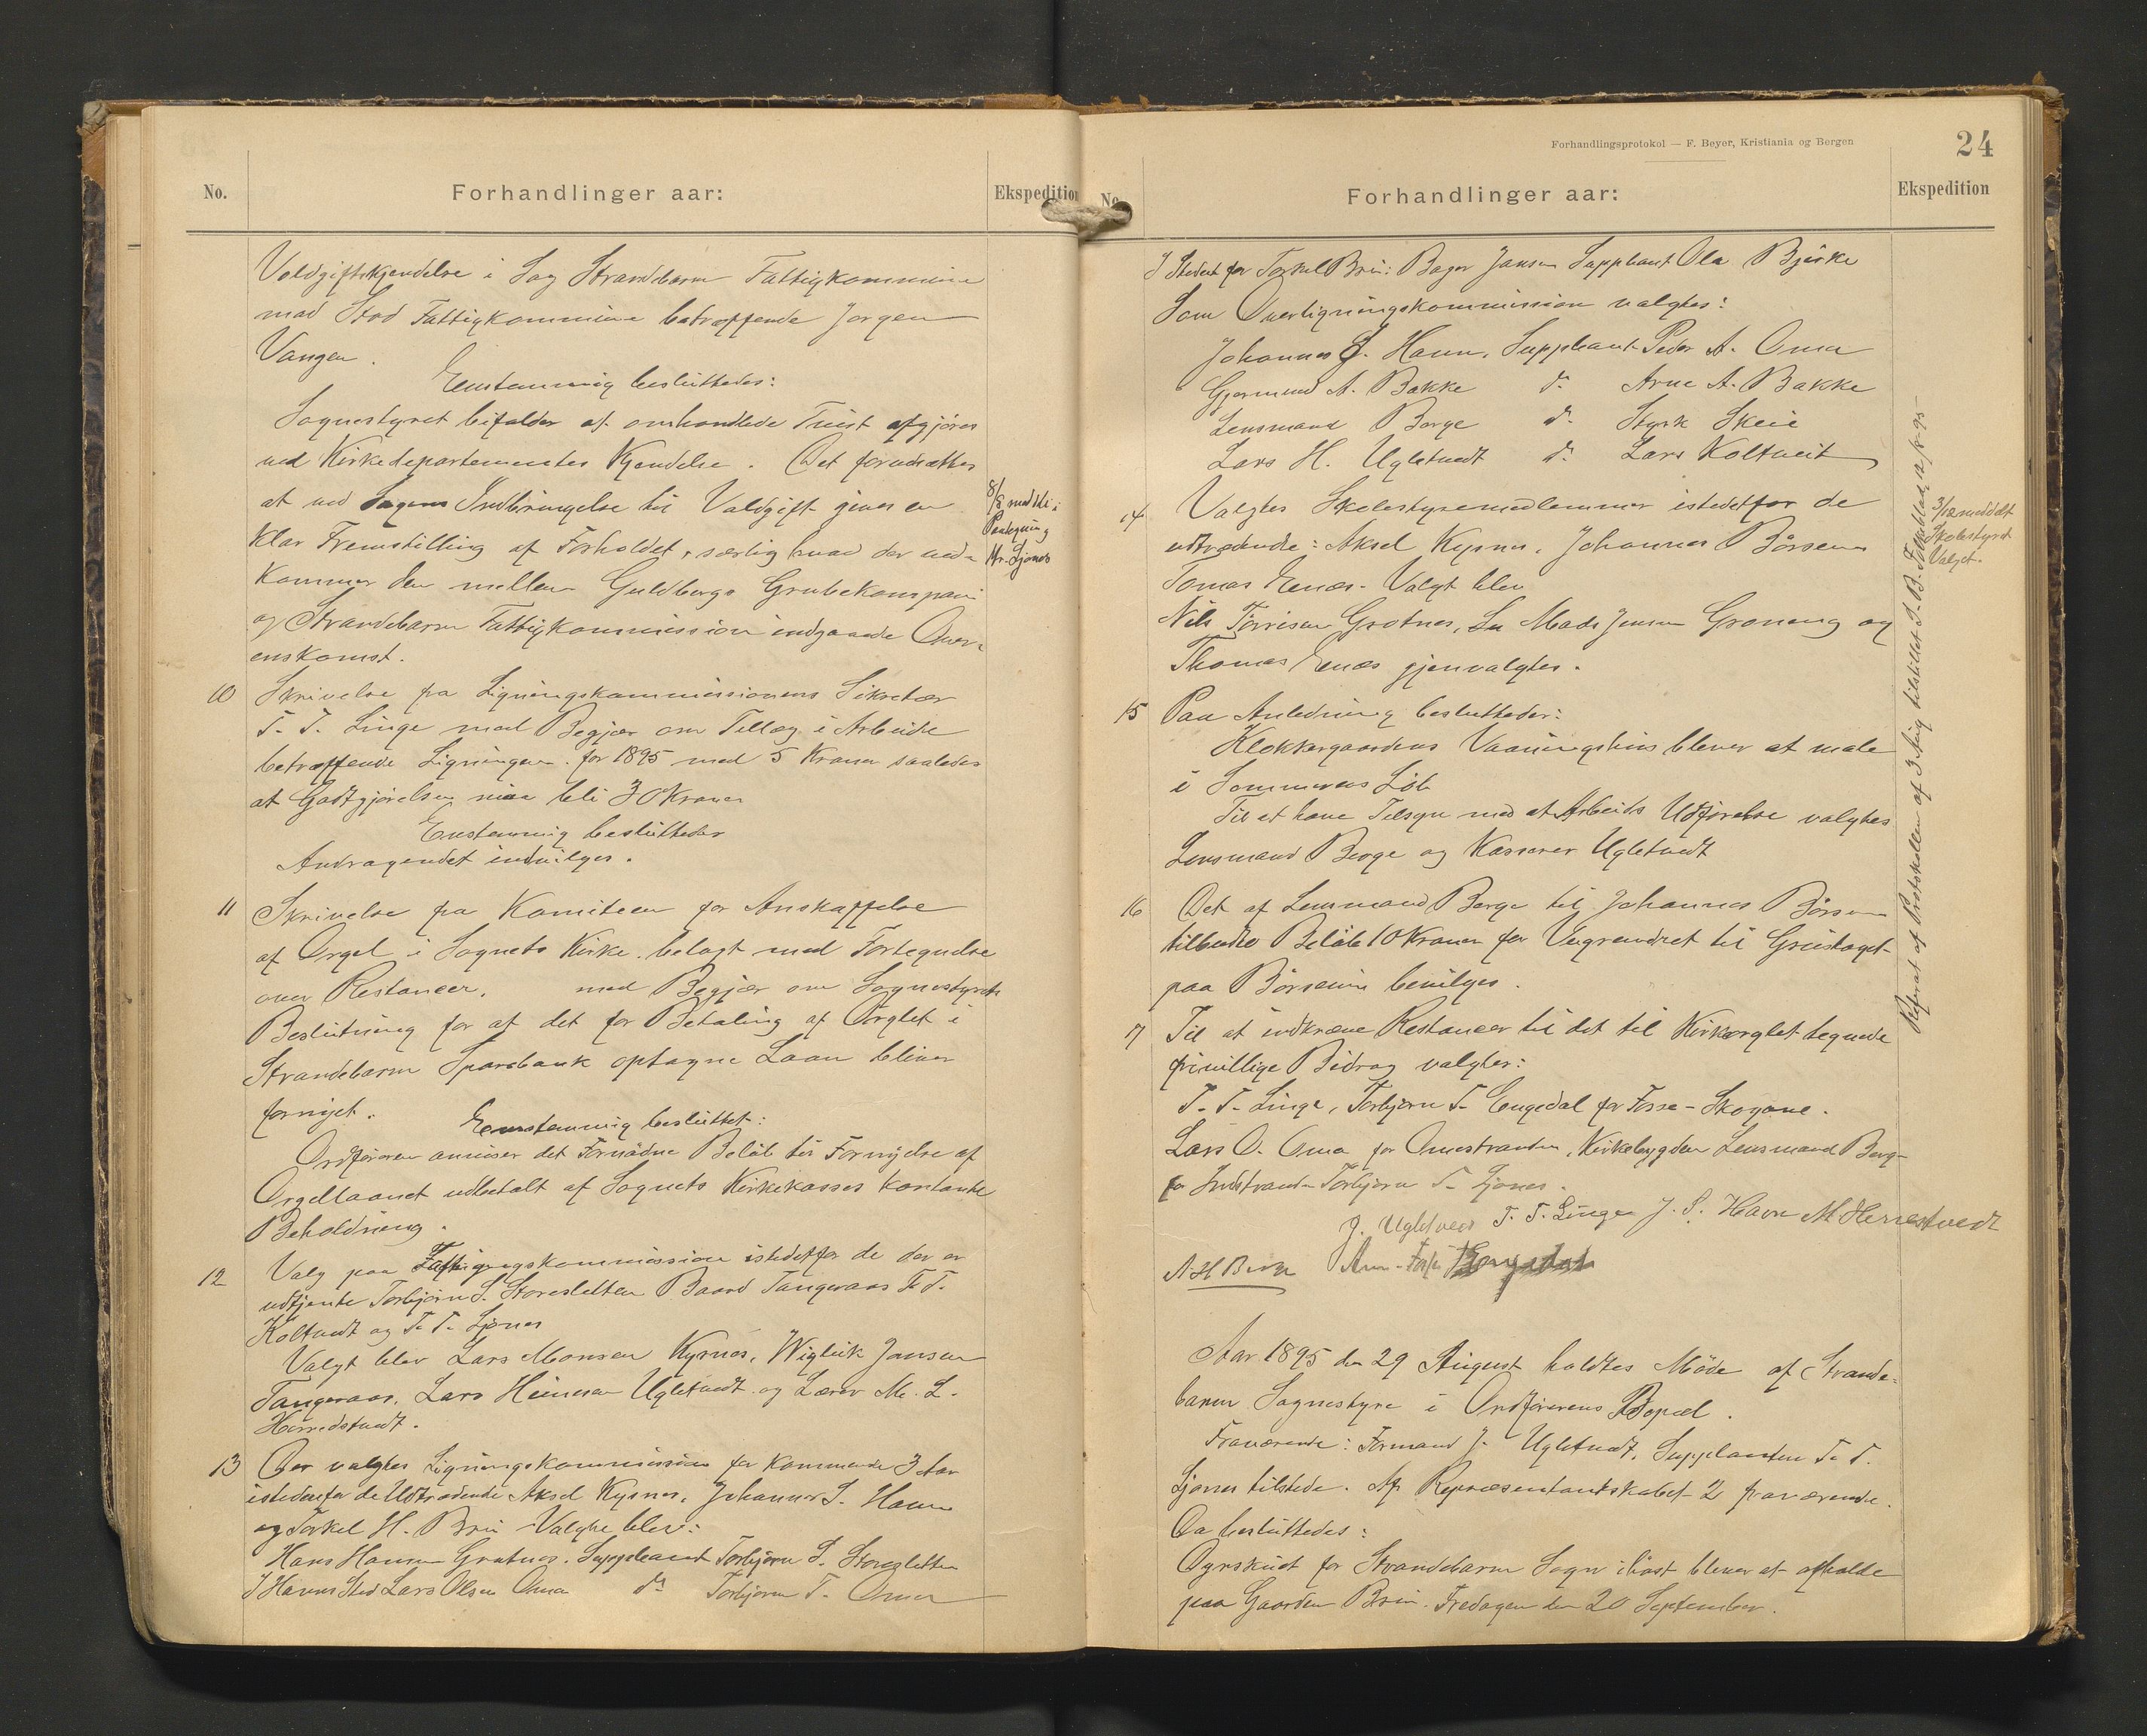 No.
Forhandlinger aar:
Ekspedition
Voldgiftskjendelse i Sag Strandebarm Fattigkommune
mod Stod Fattigkommune betræffende Jørgen
Vangen.
Enstemmig besluttedes:
Sognestyret bifalder at omhandlede Tvist afgjøres
ved Kirkedepartementets Kjendelse. Det forudsættes
at ved Sagens Indbringelse til Voldgift gives en
klar Fremstilling af Forholdet, særlig hvad der ved-
kommer den mellem Guldbergs Grubekompani
og Strandebarm Fattigkommission indgaaede Over-
enskomst.
8/8 meddelt i
Paategning
Hr. Ljones
10 Skrivelse fra Ligningskommissionens Sekretær
T. T. Linge med Begjær om Tillæg i Arbeide
betræffende Ligningen for 1895 med 5 Kroner saaledes
at Godtgjørelsen maa bli 30 Kroner
Enstemmig besluttedes
Andragendet indvilges.
11 Skrivelse fra Komiteen for Anskaffelse
af Orgel i Sognets Kirke. belagt med Fortegnelse
over Restancer, med Begjær om Sognestyrets
Beslutning for at det for Betaling af Orglet i
Strandebarm Sparebank optagne Laan bliver
fornyet.
Enstemmig besluttet:
Ordføreren anviser det Fornødne Beløb til Fornyelse af
Orgellaanet udbetalt af Sognets Kirkekasses kontante
Beholdning.
12 Valg paa Fattigkommission istedetfor de der er
udtjente Torbjørn S. Storesletten Baard Tangeraas T. T.
Koltvedt og T. T. Ljones
Valgt blev Lars Monsen Kysnes, Wiglik Jansen
Tangeraas, Lars Heinesen Ugletvedt og Lærer M. L.
Herredstvedt.
13 Der valgtes Ligningskommission for kommende 3 Aar
istedenfor de Udtrædende Aksel Kysnes, Johannes S. Haun
og Torkel H. Brui Valgte blev:
Hans Hansen Grotnes. Suppleant Torbjørn S. Storesletten
I Hauns Sted Lars Olsen Oma do Torbjørn T. Oma
Forhandlingsprotokol — F. Beyer, Kristiania og Bergen
24
No.
Forhandlinger aar:
Ekspedition
I Stedet for Torkel Brui: Bager Jansen Suppleant Ola Bjørke
Som Overligningskommission valgtes:
Johannes S. Haun, Suppleant Peder A. Oma
Gjermund A. Bakke do Arne A. Bakke
Lensmand Berge do Styrk Skeie
Lars H. Ugletvedt do Lars Koltveit
14 Valgtes Skolestyremedlemmer istedetfor de
udtrædende: Aksel Kysnes, Johannes Børsem
Tomas Enæs. Valgt blev
Nils Tørrisen Grotnes, Mads Jensen Groneng og
Thomas Enæs gjenvalgtes.
3/12 meddelt
Skolestyret
Valget.
15 Paa Anledning besluttedes:
Klokkergaardens Vaaningshus bliver at male
i Sommerens Løb
Til at have Tilsyn med at Arbeids Udførelse valgtes
Lensmand Berge og Kasserer Ugletvedt
16 Det af Lensmand Berge til Johannes Børsem
tilbudte Beløb 10 Kroner for Vegrendret til Grustaget
paa Børsemi bevilges.
17 Til at indkræve Restancer til det til Kirkeorglet tegnede
frivillige Bidrag valgtes:
T. T. Linge, Torbjørn T. Engedal for Fosse-Skogane.
Lars O. Oma for Omestranden, Kirkebygden Lensmand Berge
for Indstranden Torbjørn T. Ljones.
Referat af Protokollen af 3 Aug tilstillet S. B. Folkeblad 12/8 95
J. Ugletveit T. T. Linge J. S. Haun M Herrestvedt
A. H. Berge
Aar 1895 den 29 August holdtes Møde af Strande-
barm Sognestyre i Ordførerens Bopæl.
Fraværende: Formand J. Ugletvedt, Suppleanten T. T.
Ljones tilstede. Af Repræsentantskabet 2 fraværende.
Da besluttedes:
Dyrskuet for Strandebarm Sogn ihøst bliver at afholde
paa Gaarden Brui Fredagen den 20 September.